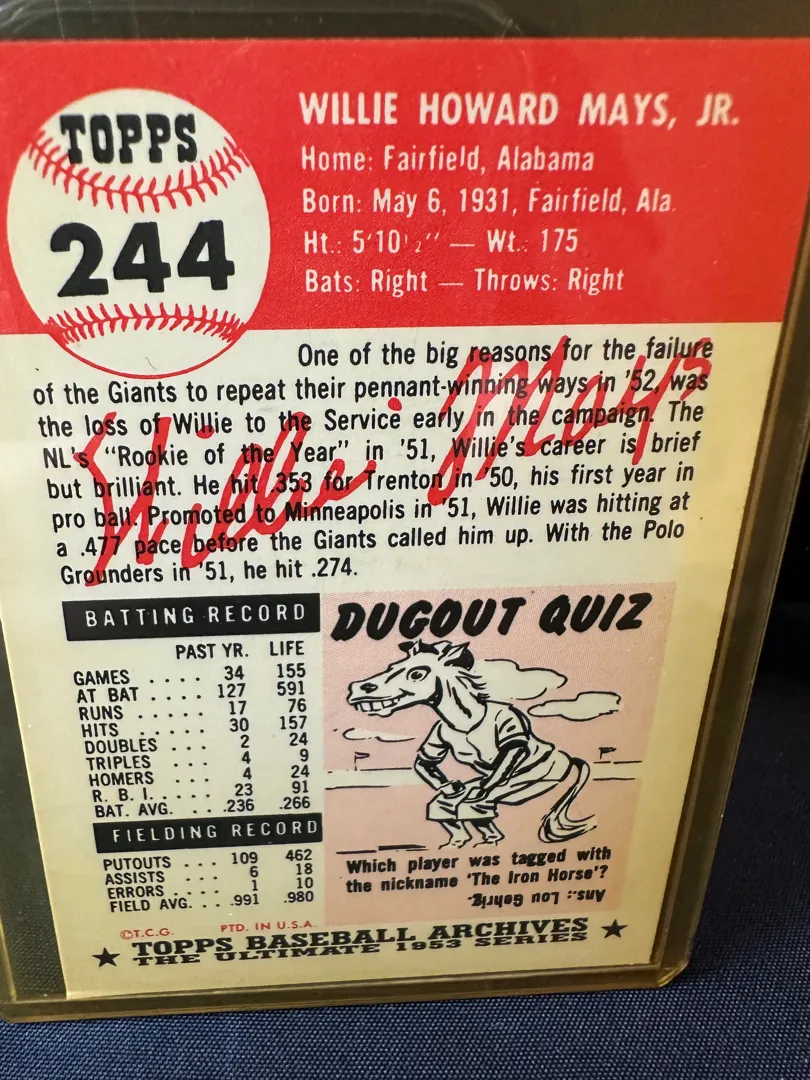 TOPPS
244
WILLIE HOWARD MAYS, JR.
Home: Fairfield, Alabama
Born: May 6, 1931, Fairfield, Ala.
Ht.: 5'10½" — Wt.: 175
Bats: Right — Throws: Right
One of the big reasons for the failure
of the Giants to repeat their pennant-winning ways in '52, was
the loss of Willie to the Service early in the campaign. The
NL's "Rookie of the Year" in '51, Willie's career is brief
but brilliant. He hit .353 for Trenton in '50, his first year in
pro ball. Promoted to Minneapolis in '51, Willie was hitting at
a .477 pace before the Giants called him up. With the Polo
Grounders in '51, he hit .274.
Willie Mays
BATTING RECORD
PAST YR. LIFE
GAMES .... 34 155
AT BAT .... 127 591
RUNS ..... 17 76
HITS ..... 30 157
DOUBLES ... 2 24
TRIPLES ... 4 9
HOMERS ... 4 24
R. B. I. .... 23 91
BAT. AVG. ... .236 .266
FIELDING RECORD
PUTOUTS ... 109 462
ASSISTS .... 6 18
ERRORS .... 1 10
FIELD AVG. ... .991 .980
DUGOUT QUIZ
Which player was tagged with
the nickname 'The Iron Horse'?
Ans:: Lou Gehrig.
©T.C.G. PTD. IN U.S.A.
★ TOPPS BASEBALL ARCHIVES ★
THE ULTIMATE 1953 SERIES